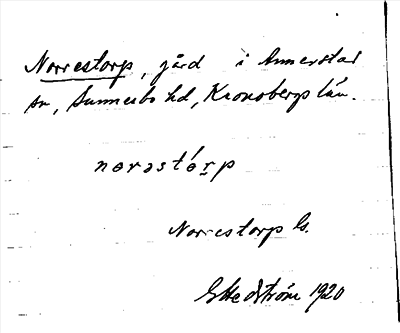 Norrestorp, gård i Annerstad
sn, Sunnerbo hd, Kronobergs län.
norastórp
Norrestorp Gs.
E Hedström 1920